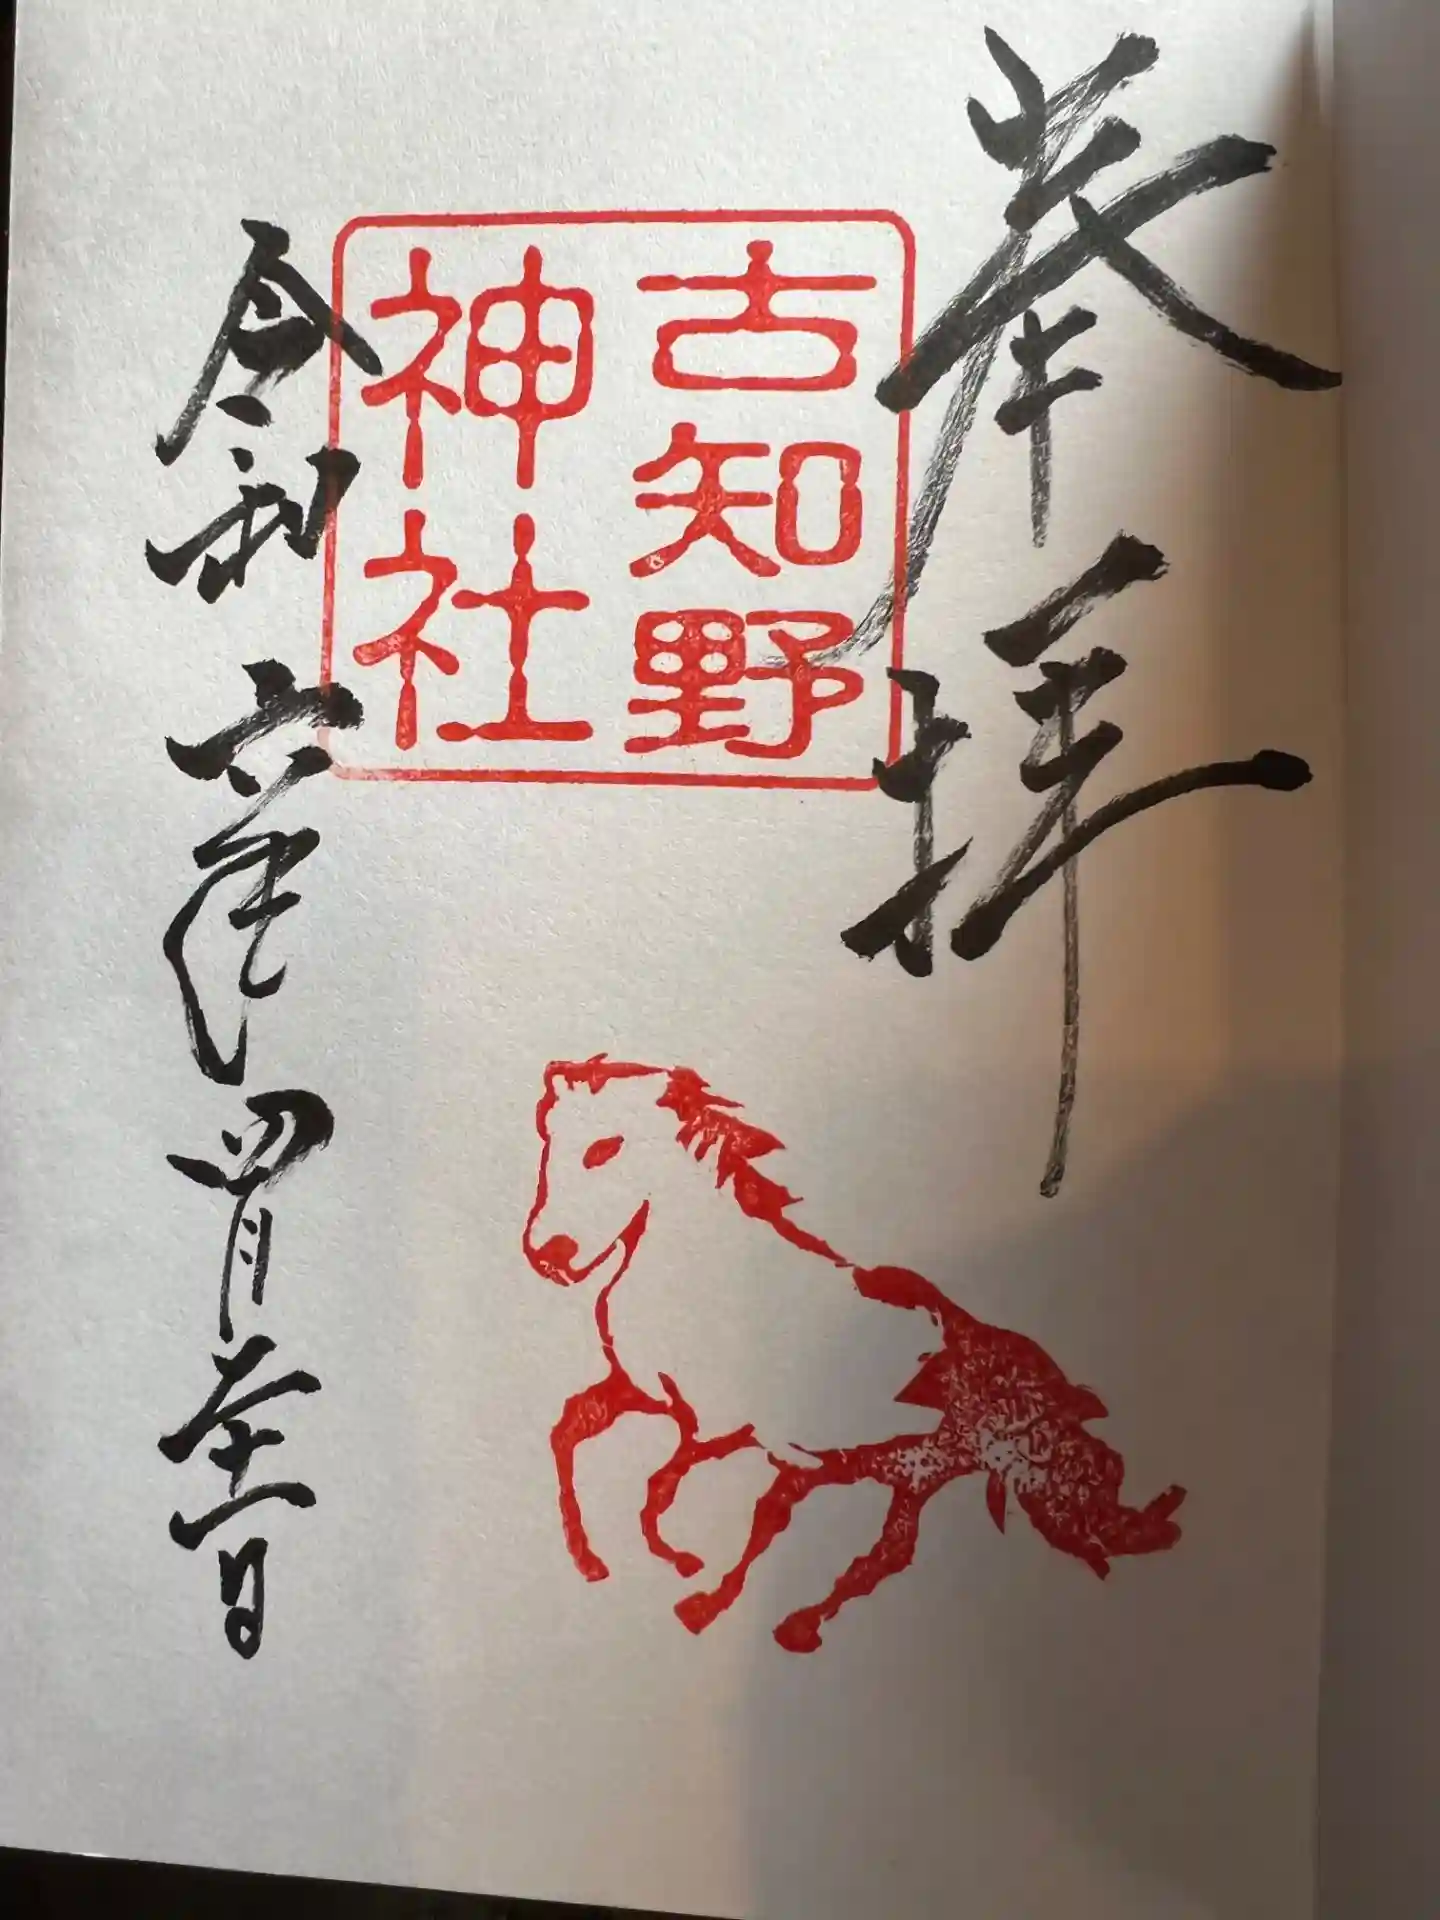 奉拝
古知野
神社
令和六年四月壱日